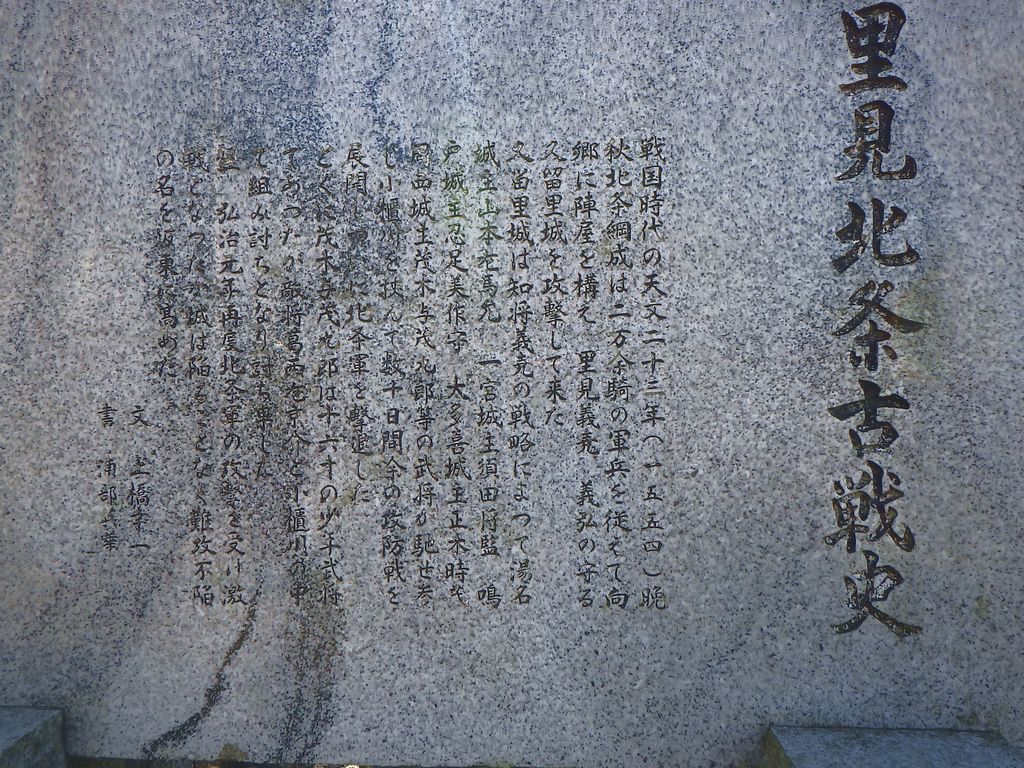 里見北条古戦史
戦国時代の天文二十三年（一五五四）晩
秋北条綱成は二万余騎の軍兵を従えて向
郷に陣屋を構え 里見義堯 義弘の守る
久留里城を攻撃して来た
久留里城は知将義堯の戦略によつて湯名
城主山本左馬允 一宮城主須田将監 鳴
戸城主忍足美作守 大多喜城主正木時茂
岡西城主茂木与茂九郎等の武将が馳せ参
じ小櫃川を挟んで数十日間余の攻防戦を
展開し 北条軍を撃退した
とくに茂木与茂九郎は十六才の少年武将
であつたが敵将葛西左京介と小櫃川の中
で組み討ちとなり討ち果した
翌 弘治元年再度北条軍の攻撃を受け激
戦となつたが城は陥ることなく難攻不陥
の名を坂東に高めた
文
書